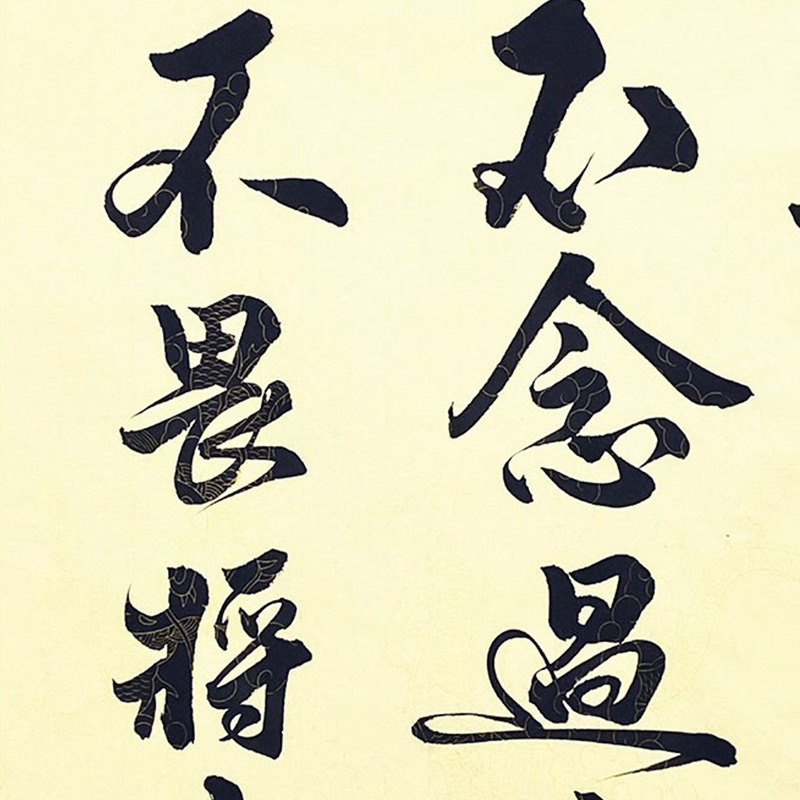 不念過
不畏將